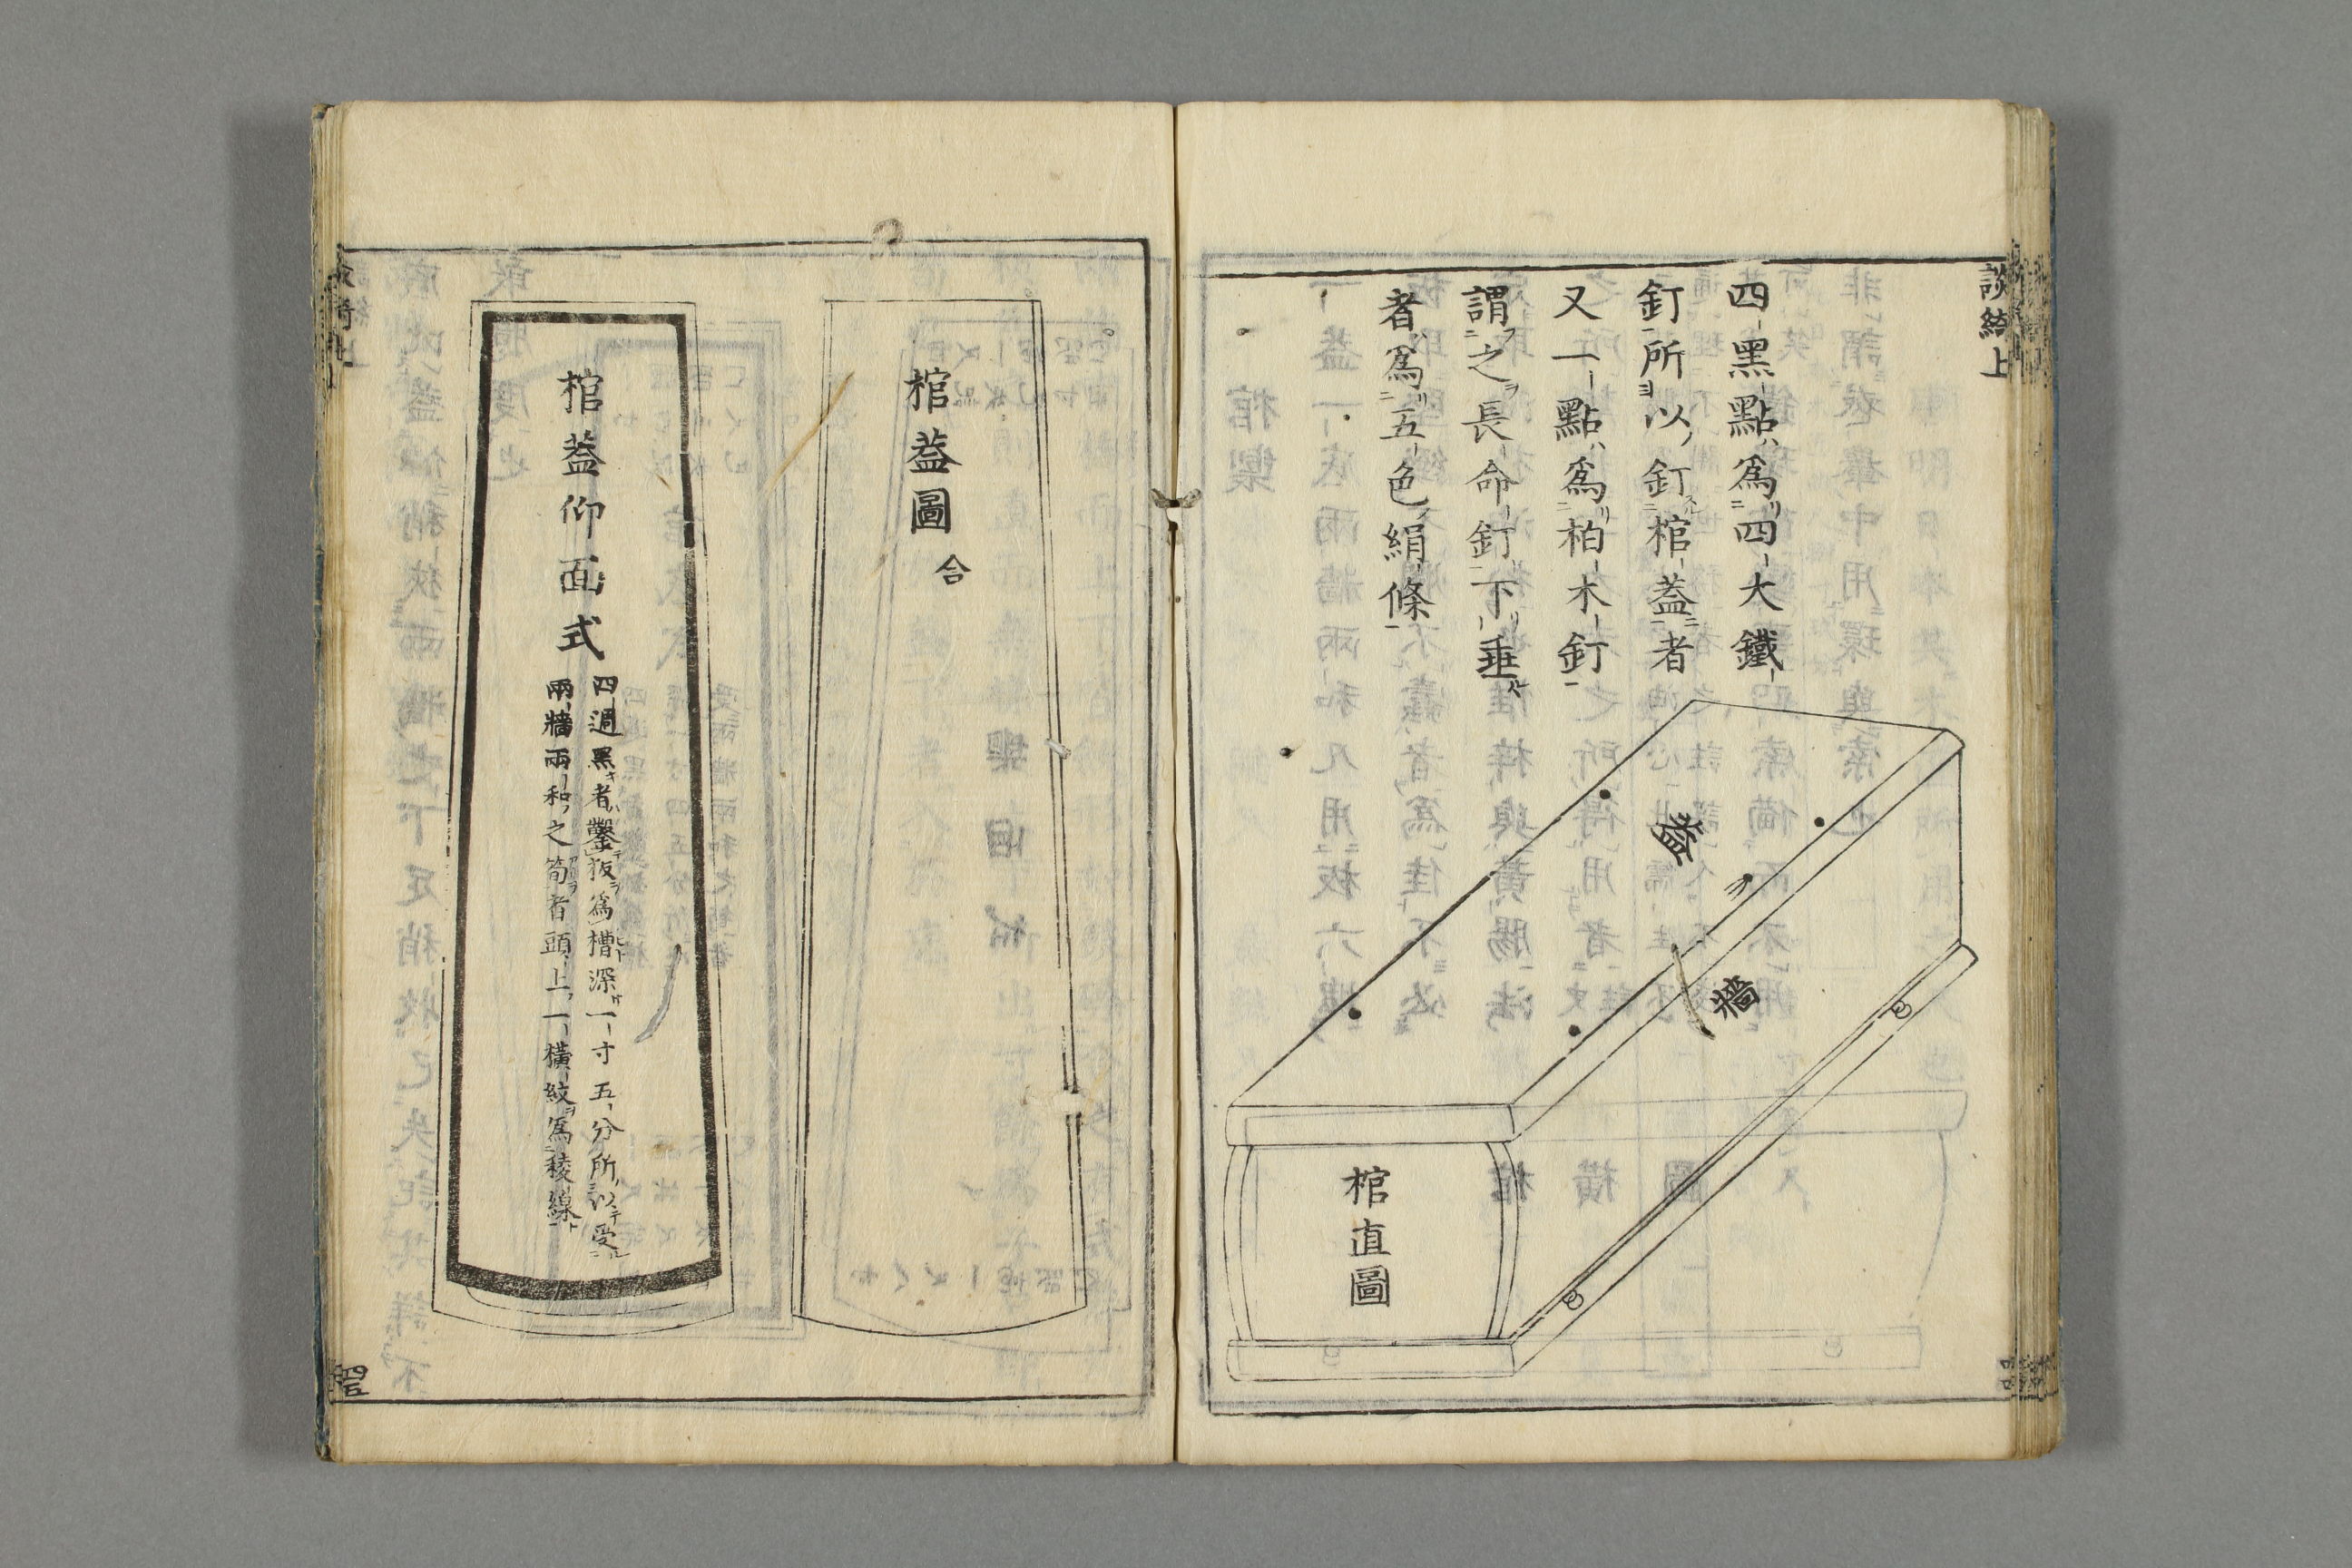 談綺上
四黑點爲四大鐵
釘所以釘棺葢者
又一點爲柏木釘
謂之長命釘下垂
者爲五色絹條
葢
牆
棺直圖
棺葢圖
合
棺葢仰面式
四週黑者鑿板爲槽深一寸五分所以受
兩牆兩和之筍者頭上一橫紋爲稜線